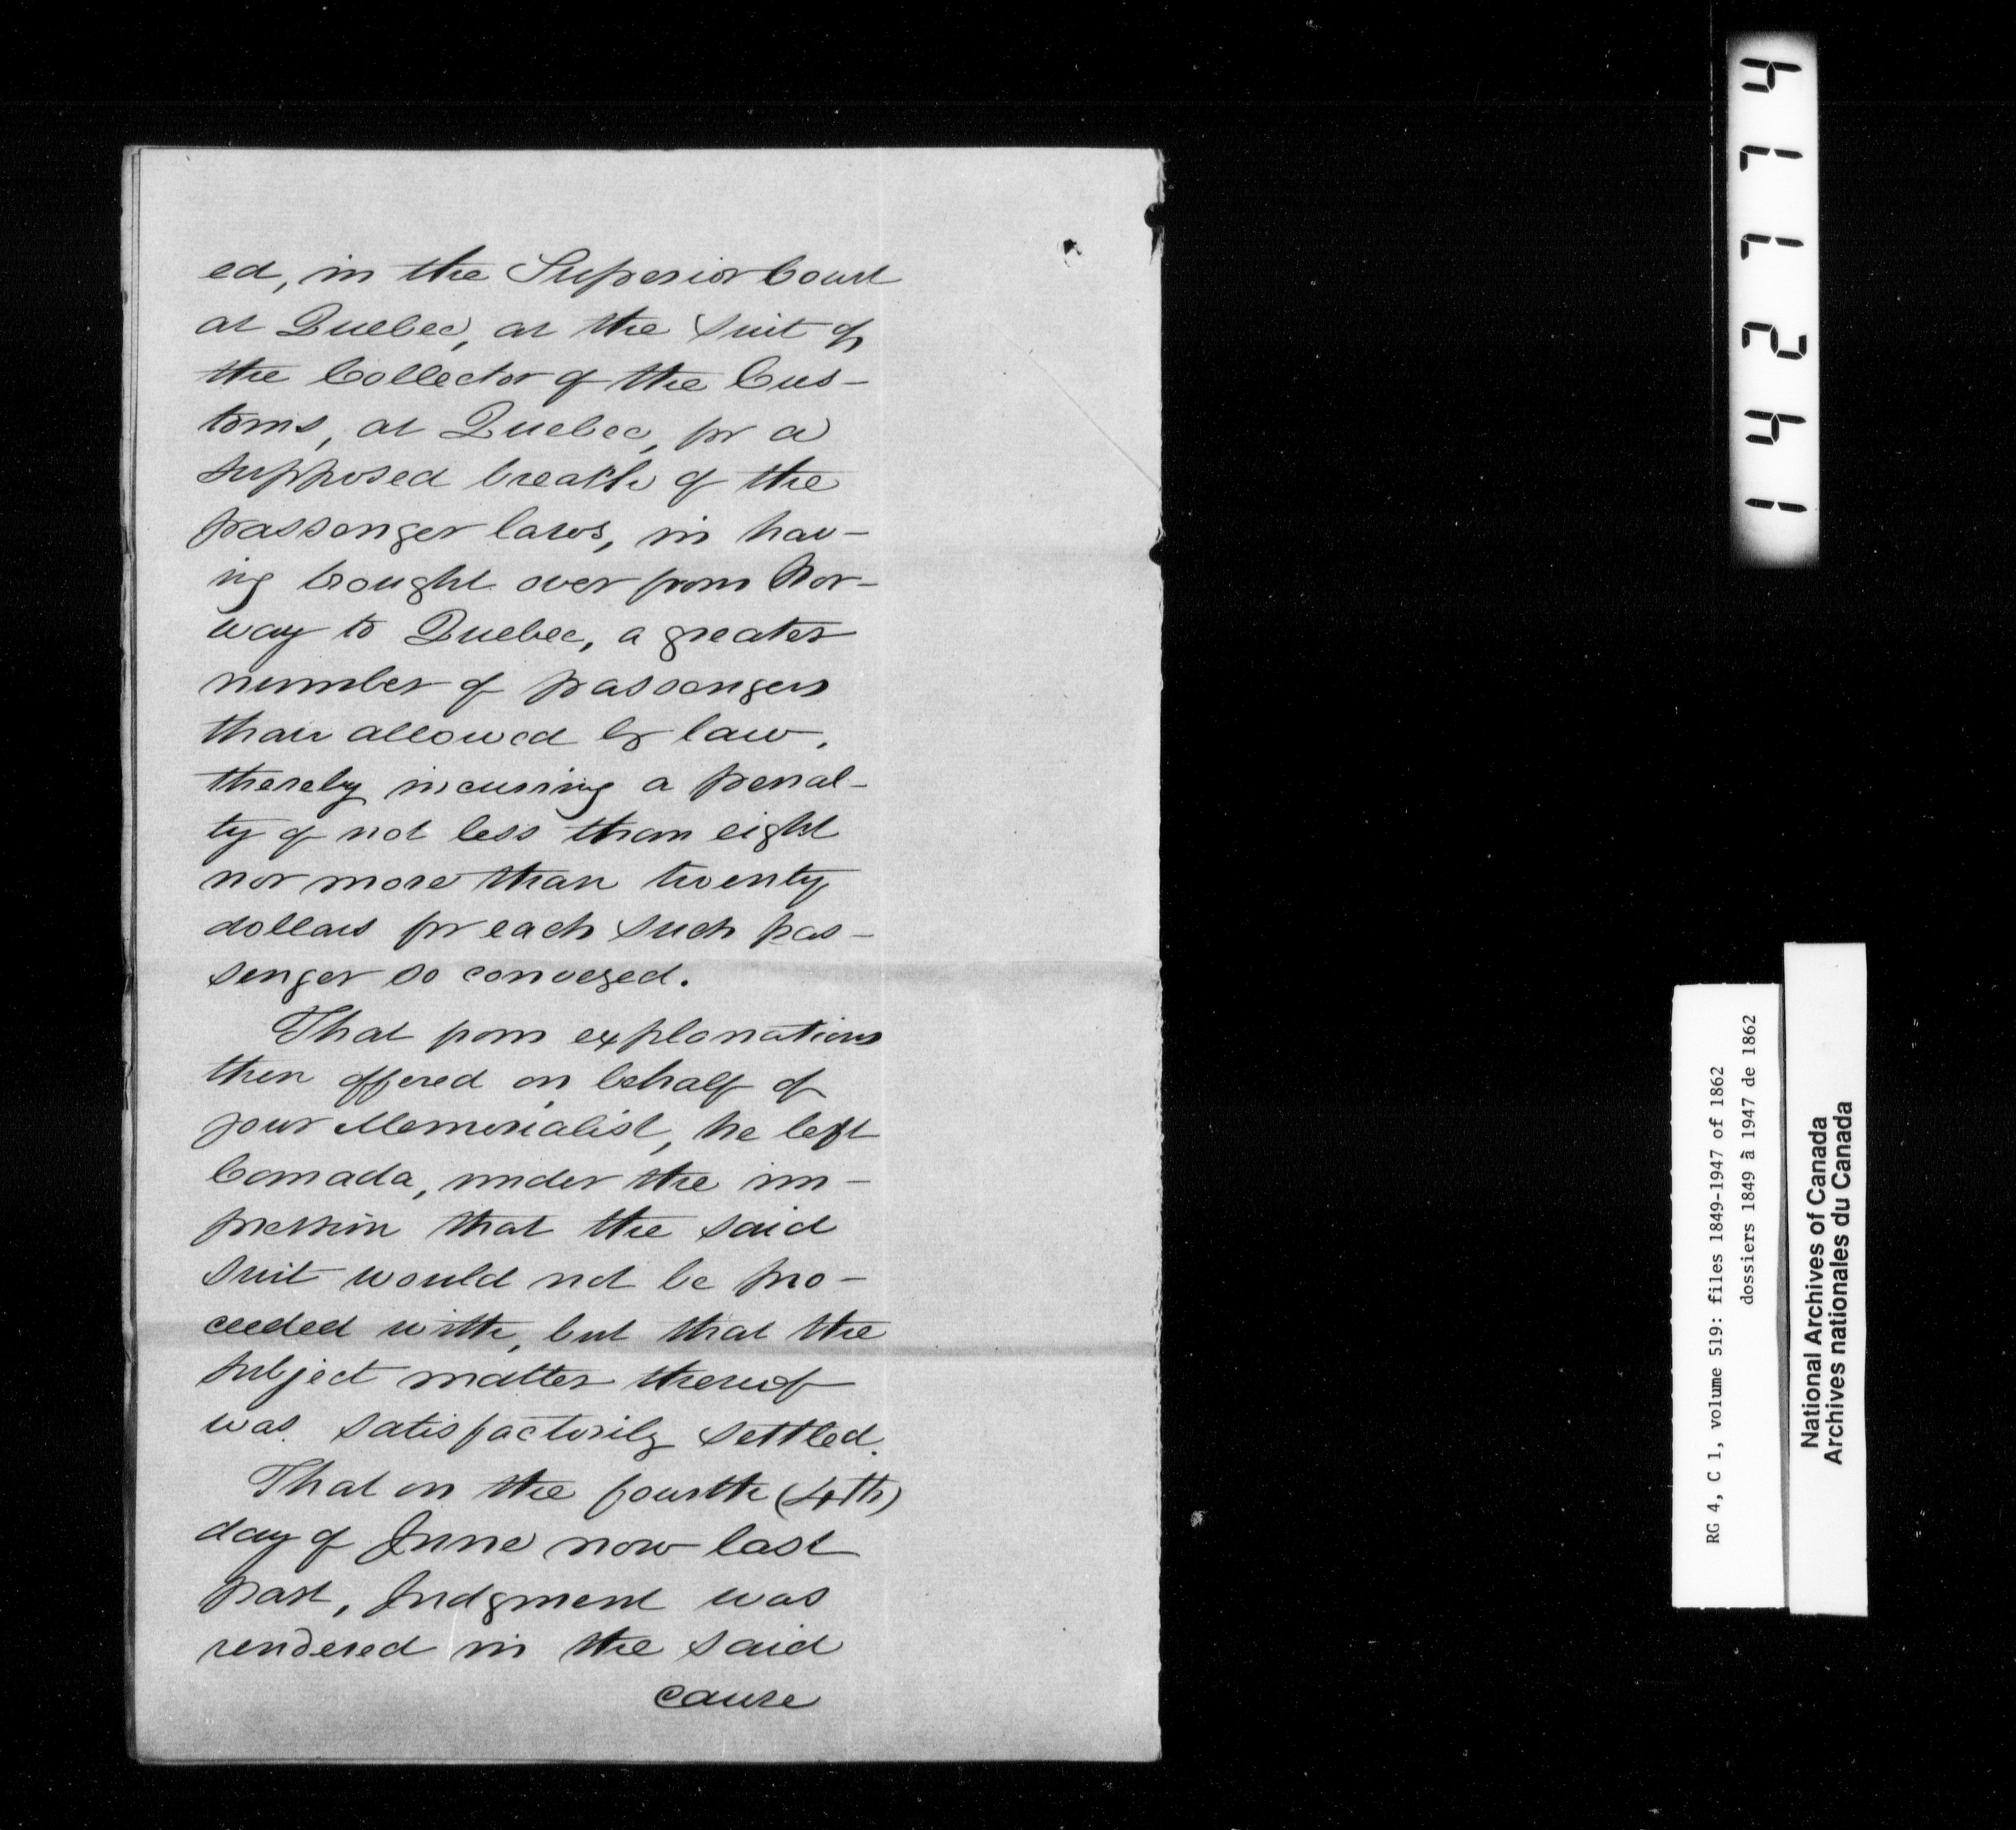 ed, in the Superior Court
at Quebec, at the suit of
the Collector of the Cus-
toms, at Quebec, for a
supposed breach of the
passenger laws, in hav-
ing brought over from Nor-
way to Quebec, a greater
number of passengers
than allowed by law,
thereby incurring a penal-
ty of not less than eight
nor more than twenty
dollars for each such pas-
senger so conveyed.
That from explanations
then offered on behalf of
your Memorialist, he left
Canada, under the im-
pression that the said
suit would not be pro-
ceeded with, but that the
subject matter thereof
was satisfactorily settled.
That on the fourth (4th)
day of June now last
past, Judgment was
rendered in the said
cause
142774
RG 4, C 1, volume 519: files 1849-1947 of 1862
dossiers 1849 à 1947 de 1862
National Archives of Canada
Archives nationales du Canada